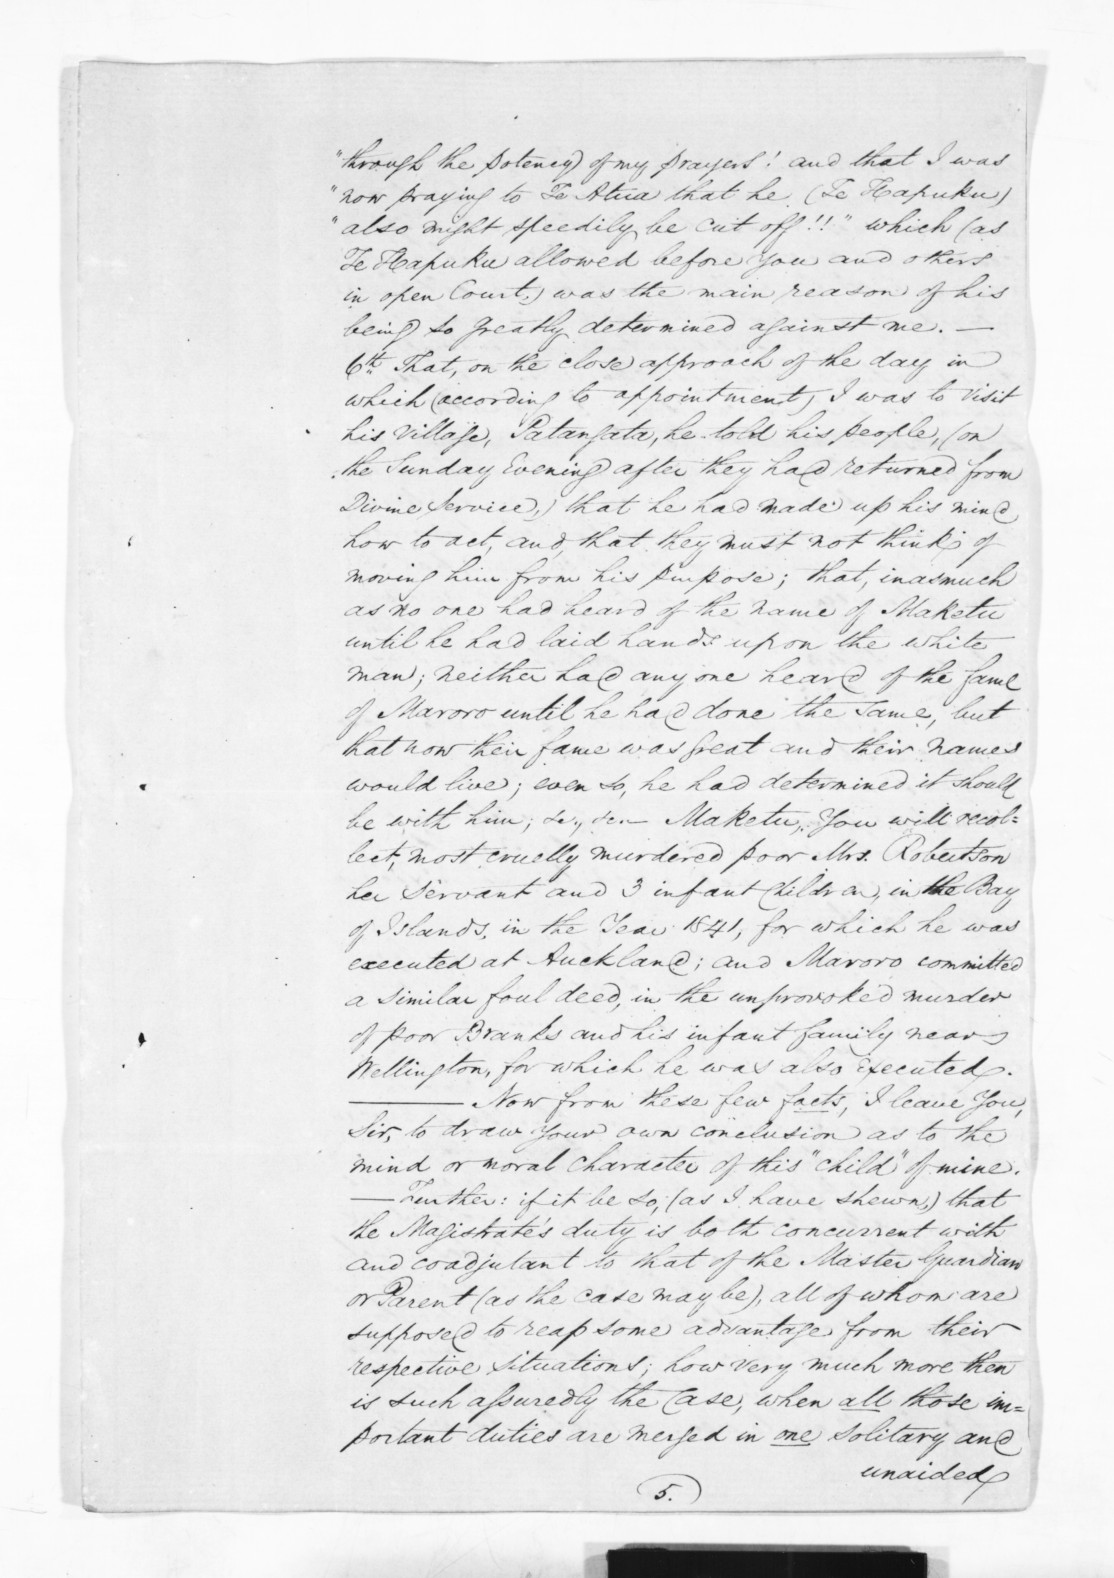 "through the potency) of my prayers! and that I was
"now praying to Te Atua that he (Te Hapuku)
"also might speedily be cut off!!" which (as
Te Hapuku allowed before you and others
in open Court,) was the main reason of his
being so greatly determined against me. —
6th. That, on the close approach of the day in
which (according to appointment) I was to visit
his Village, Patangata, he told his people, (on
the Sunday Evening after they had returned from
Divine Service,) that he had made up his mind
how to act, and, that they must not think of
moving him from his purpose; that, inasmuch
as no one had heard of the name of Maketu
until he had laid hands upon the white
man; neither had any one heard of the fame
of Maroro until he had done the same, but
that now their fame was great and their names
would live; even so, he had determined it should
be with him; &c., &c.— Maketu, You will recol=
lect, most cruelly murdered poor Mrs. Robertson
her Servant and 3 infant Children, in the Bay
of Islands, in the Year 1841, for which he was
executed at Auckland; and Maroro committed
a similar foul deed, in the unprovoked murder
of poor Branks and his infant family near
Wellington, for which he was also Executed.
——— Now from these few facts, I leave You,
Sir, to draw Your own conclusion as to the
mind or moral character of this "child" of mine.
— Further: if it be so, (as I have shewn,) that
the Magistrate's duty is both concurrent with
and coadjutant to that of the Master Guardian
or Parent (as the case may be), all of whom are
supposed to reap some advantage from their
respective situations; how very much more then
is such assuredly the Case, when all those im=
portant duties are merged in one solitary and
unaided
5.